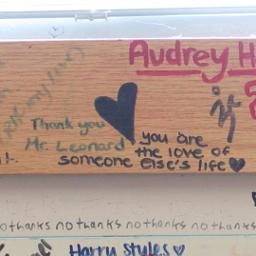 Audrey H
my love)
Thank you
Mr. Leonard
you are
the love of
someone else's life
nothanks nothanks nothanks nothanks
Harry Styles